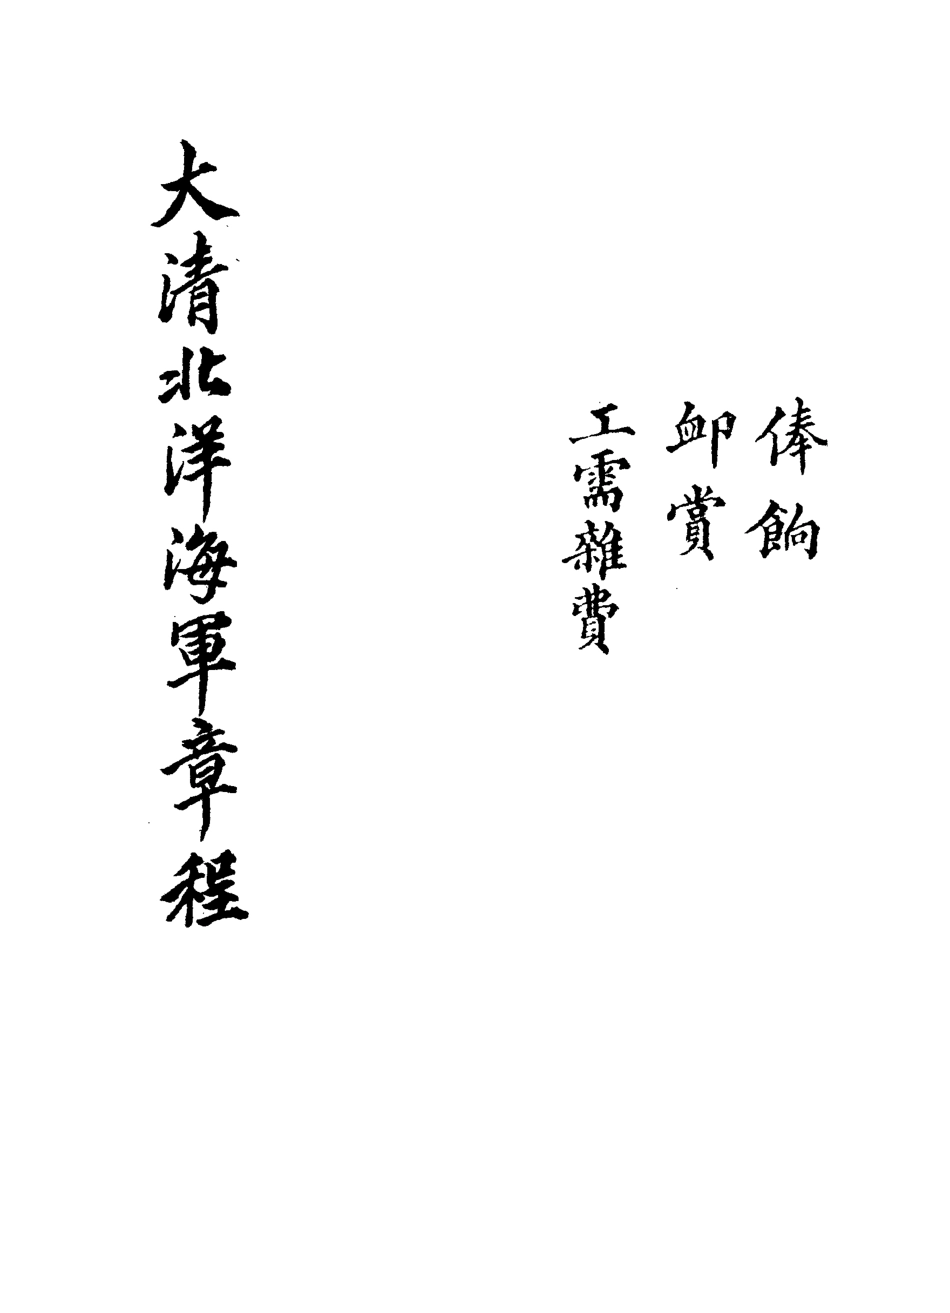 俸餉
卹賞
工需雜費
大清北洋海軍章程